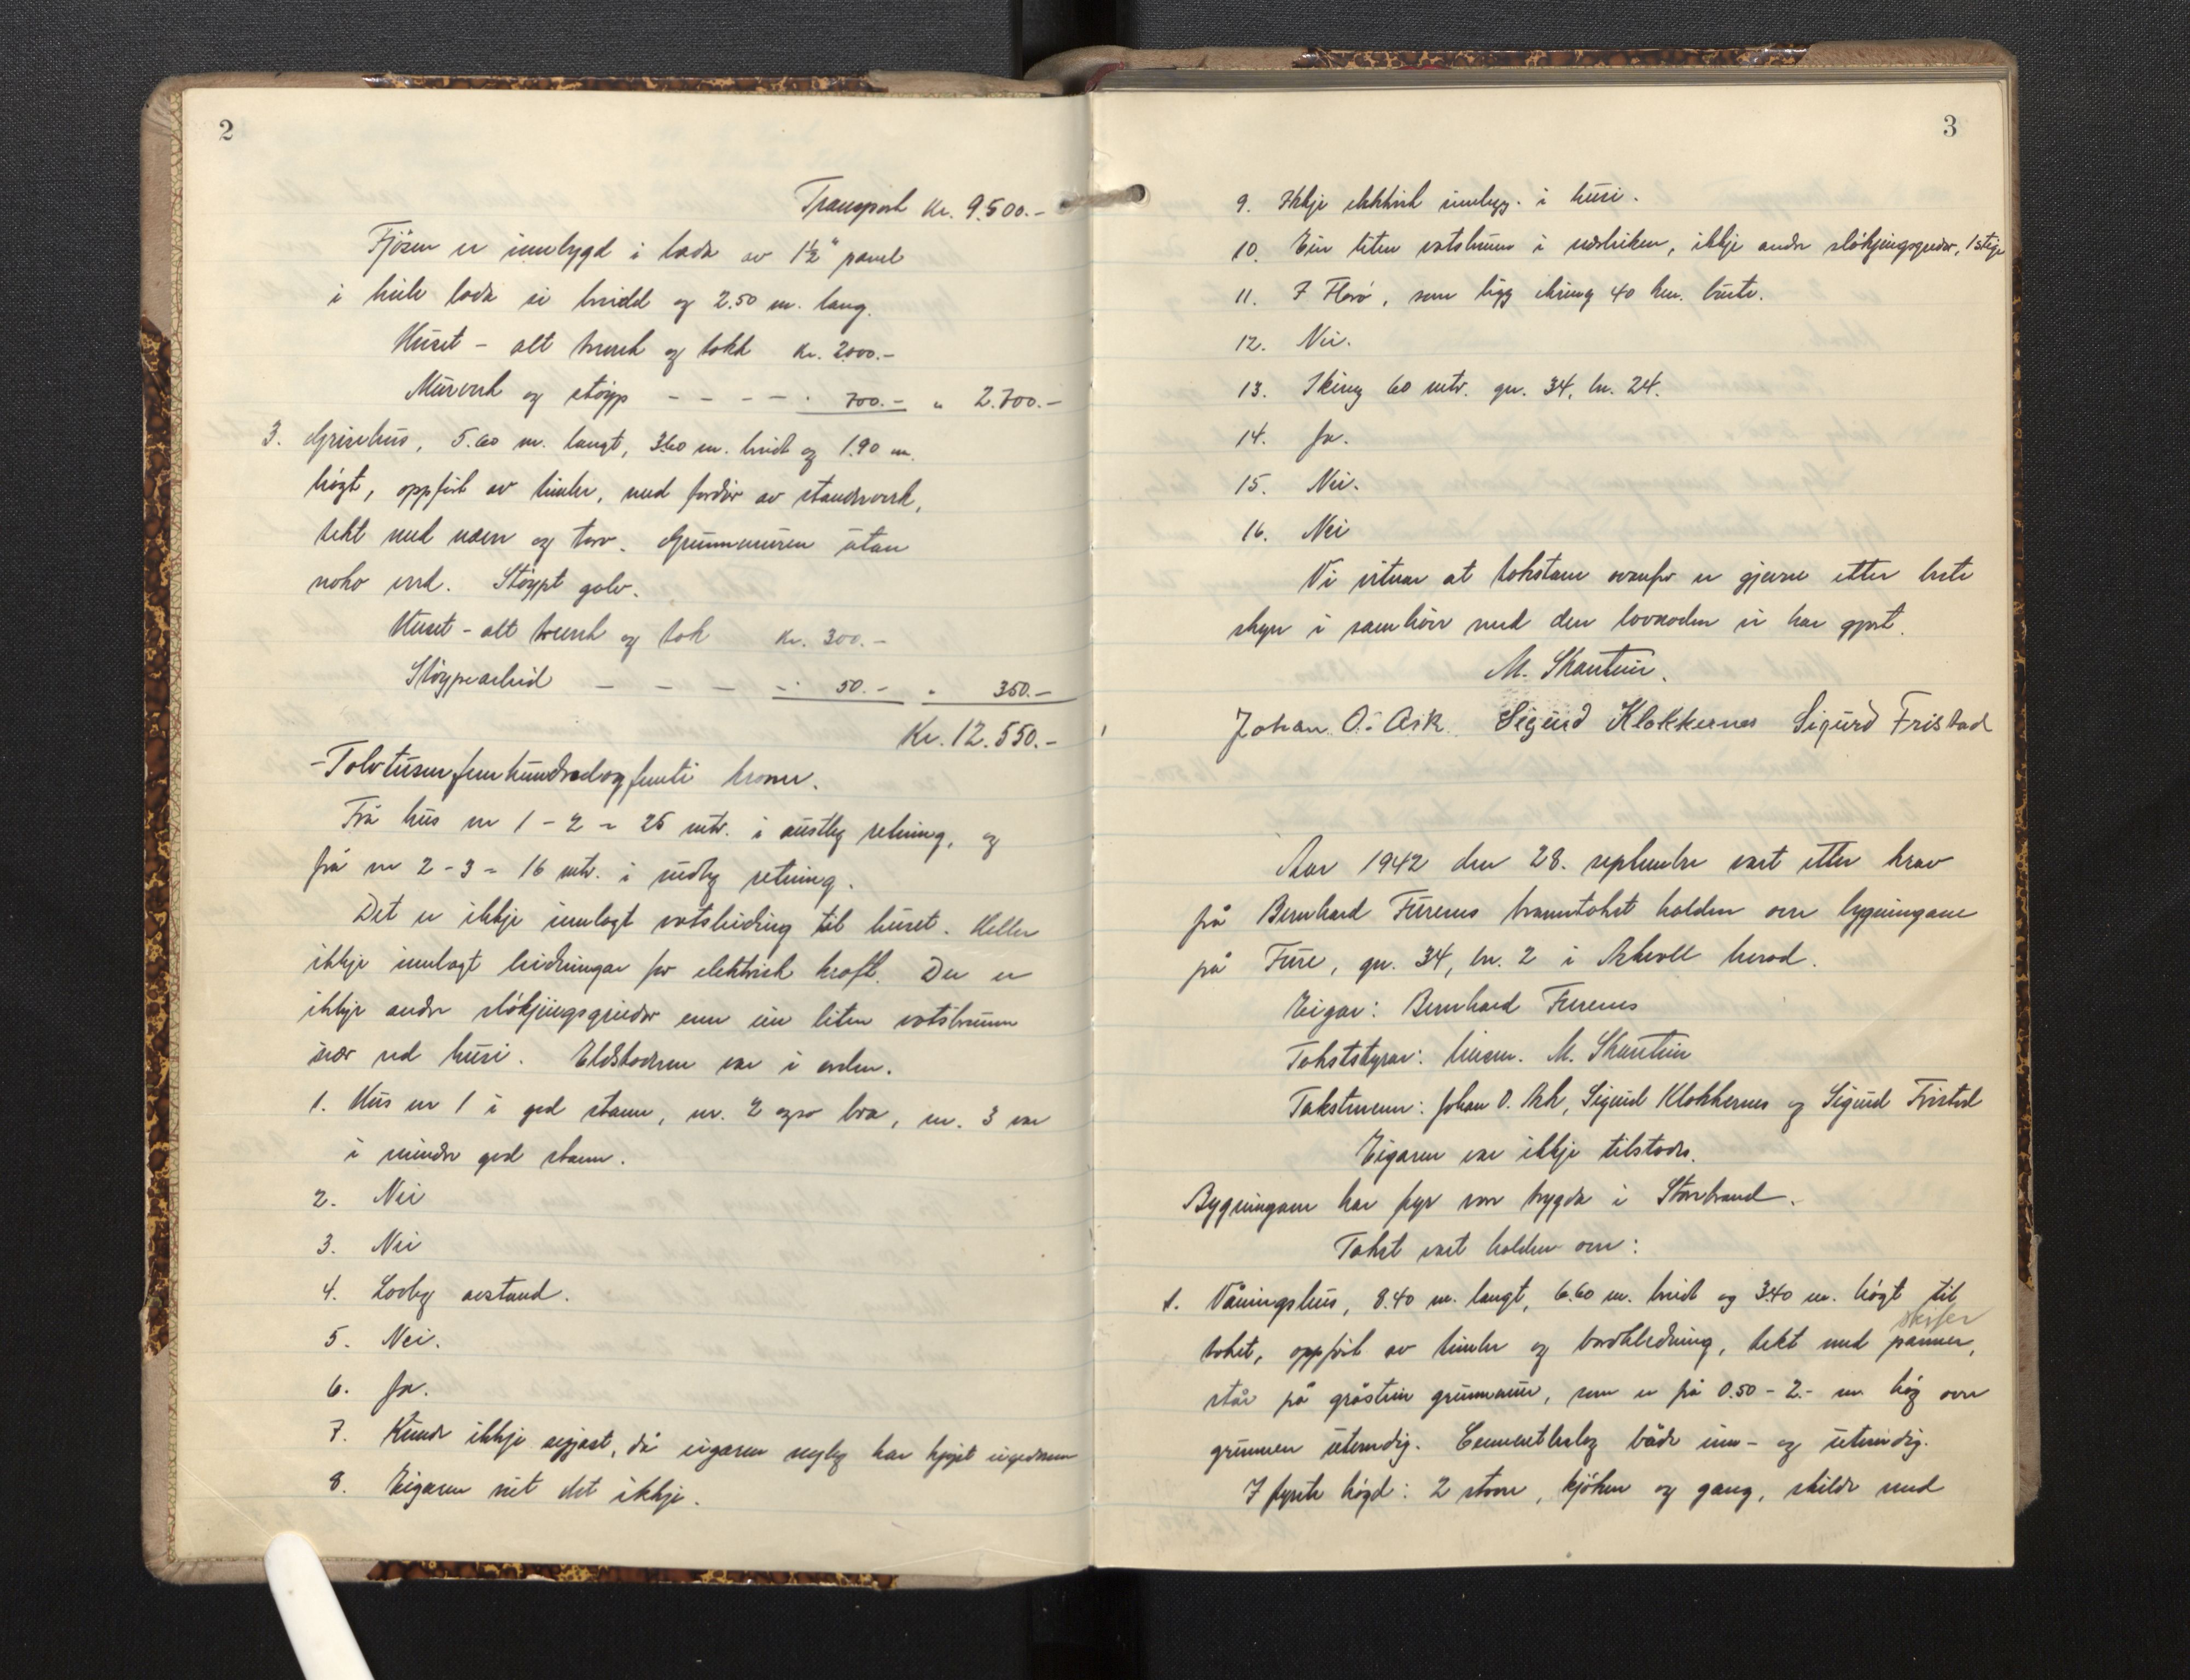 2
Transport Kr. 9.500.-
Fjösen er innbygd i løda av 1½" panel
i heile løda si breidd og 2.50 m. lang.
Huset - alt treverk og tekk Kr. 2000.-
Murverk og støyp - - - - · 700.- " 2.700.-
3. Grisehus, 5.60 m. langt, 3.60 m. breidt og 1.90 m.
högt, oppført av timber, med fordør av standverk,
tekt med næver og torv. Grunnmuren utan
noko verd. Støypt golv.
Huset - alt treverk og tak Kr. 300.-
Støypearbeid - - - - · 50.- " 350.-
Kr. 12.550.-
-Tolvtusenfemhundredogfemti kroner.
Frå hus nr 1 - 2 = 25 mtr. i austleg retning, og
frå nr 2 - 3 = 16 mtr. i sudleg retning.
Det er ikkje innlagt vatsleidning til huset. Heller
ikkje innlagt leidningar for elektrisk kraft. Der er
ikkje andre slökjingsgreidor enn ein liten vatsbrunn
nær ved husi. Eldstadene var i orden.
1. Hus nr 1 i god stann, nr. 2 også bra, nr. 3 var
i mindre god stann.
2. Nei
3. Nei
4. Lovleg avstand.
5. Nei.
6. Ja.
7. Kunde ikkje segjast, då eigaren nyleg har kjøpt eigedomen
8. Eigaren veit det ikkje.
3
9. Ikkje elektrisk innlegg. i husi.
10. Ein liten vatsbrunn i nærleiken, ikkje andre slökjingsgreidor, 1 stige
11. I Florö, som ligg ikring 40 km. burte.
12. Nei.
13. Ikring 60 mtr. gn. 34, bn. 24.
14. Ja.
15. Nei.
16. Nei
Vi vitnar at takstane ovanfor er gjevne etter beste
skyn i samhøve med den lovnaden vi har gjort.
M. Skantein.
Johan O. Ask. Sigurd Klokkernes Sigurd Fristad
Aar 1942 den 28. september vart etter krav
frå Bernhard Furenes branntakst halden over bygningane
på Fure, gn. 34, bn. 2 i Askvoll herad.
Eigar: Bernhard Furenes
Takststyrar: lensm. M. Skantein
Takstmenn: Johan O. Ask, Sigurd Klokkernes og Sigurd Fristad
Eigaren var ikkje tilstades.
Bygningane har fyr vore trygda i Storebrand.
Takst vart halden over:
1. Våningshus, 8.40 m. langt, 6.60 m. breidt og 3.40 m. högt til
skifer
taket, oppført av timber og bordkledning, tekt med panner,
står på gråstein grunnmur, som er frå 0.50 - 2.- m. høg over
grunnen utvendig. Cementbeleg både inn- og utvendig.
I fyrste högd: 2 stover, kjöken og gang, skilde med